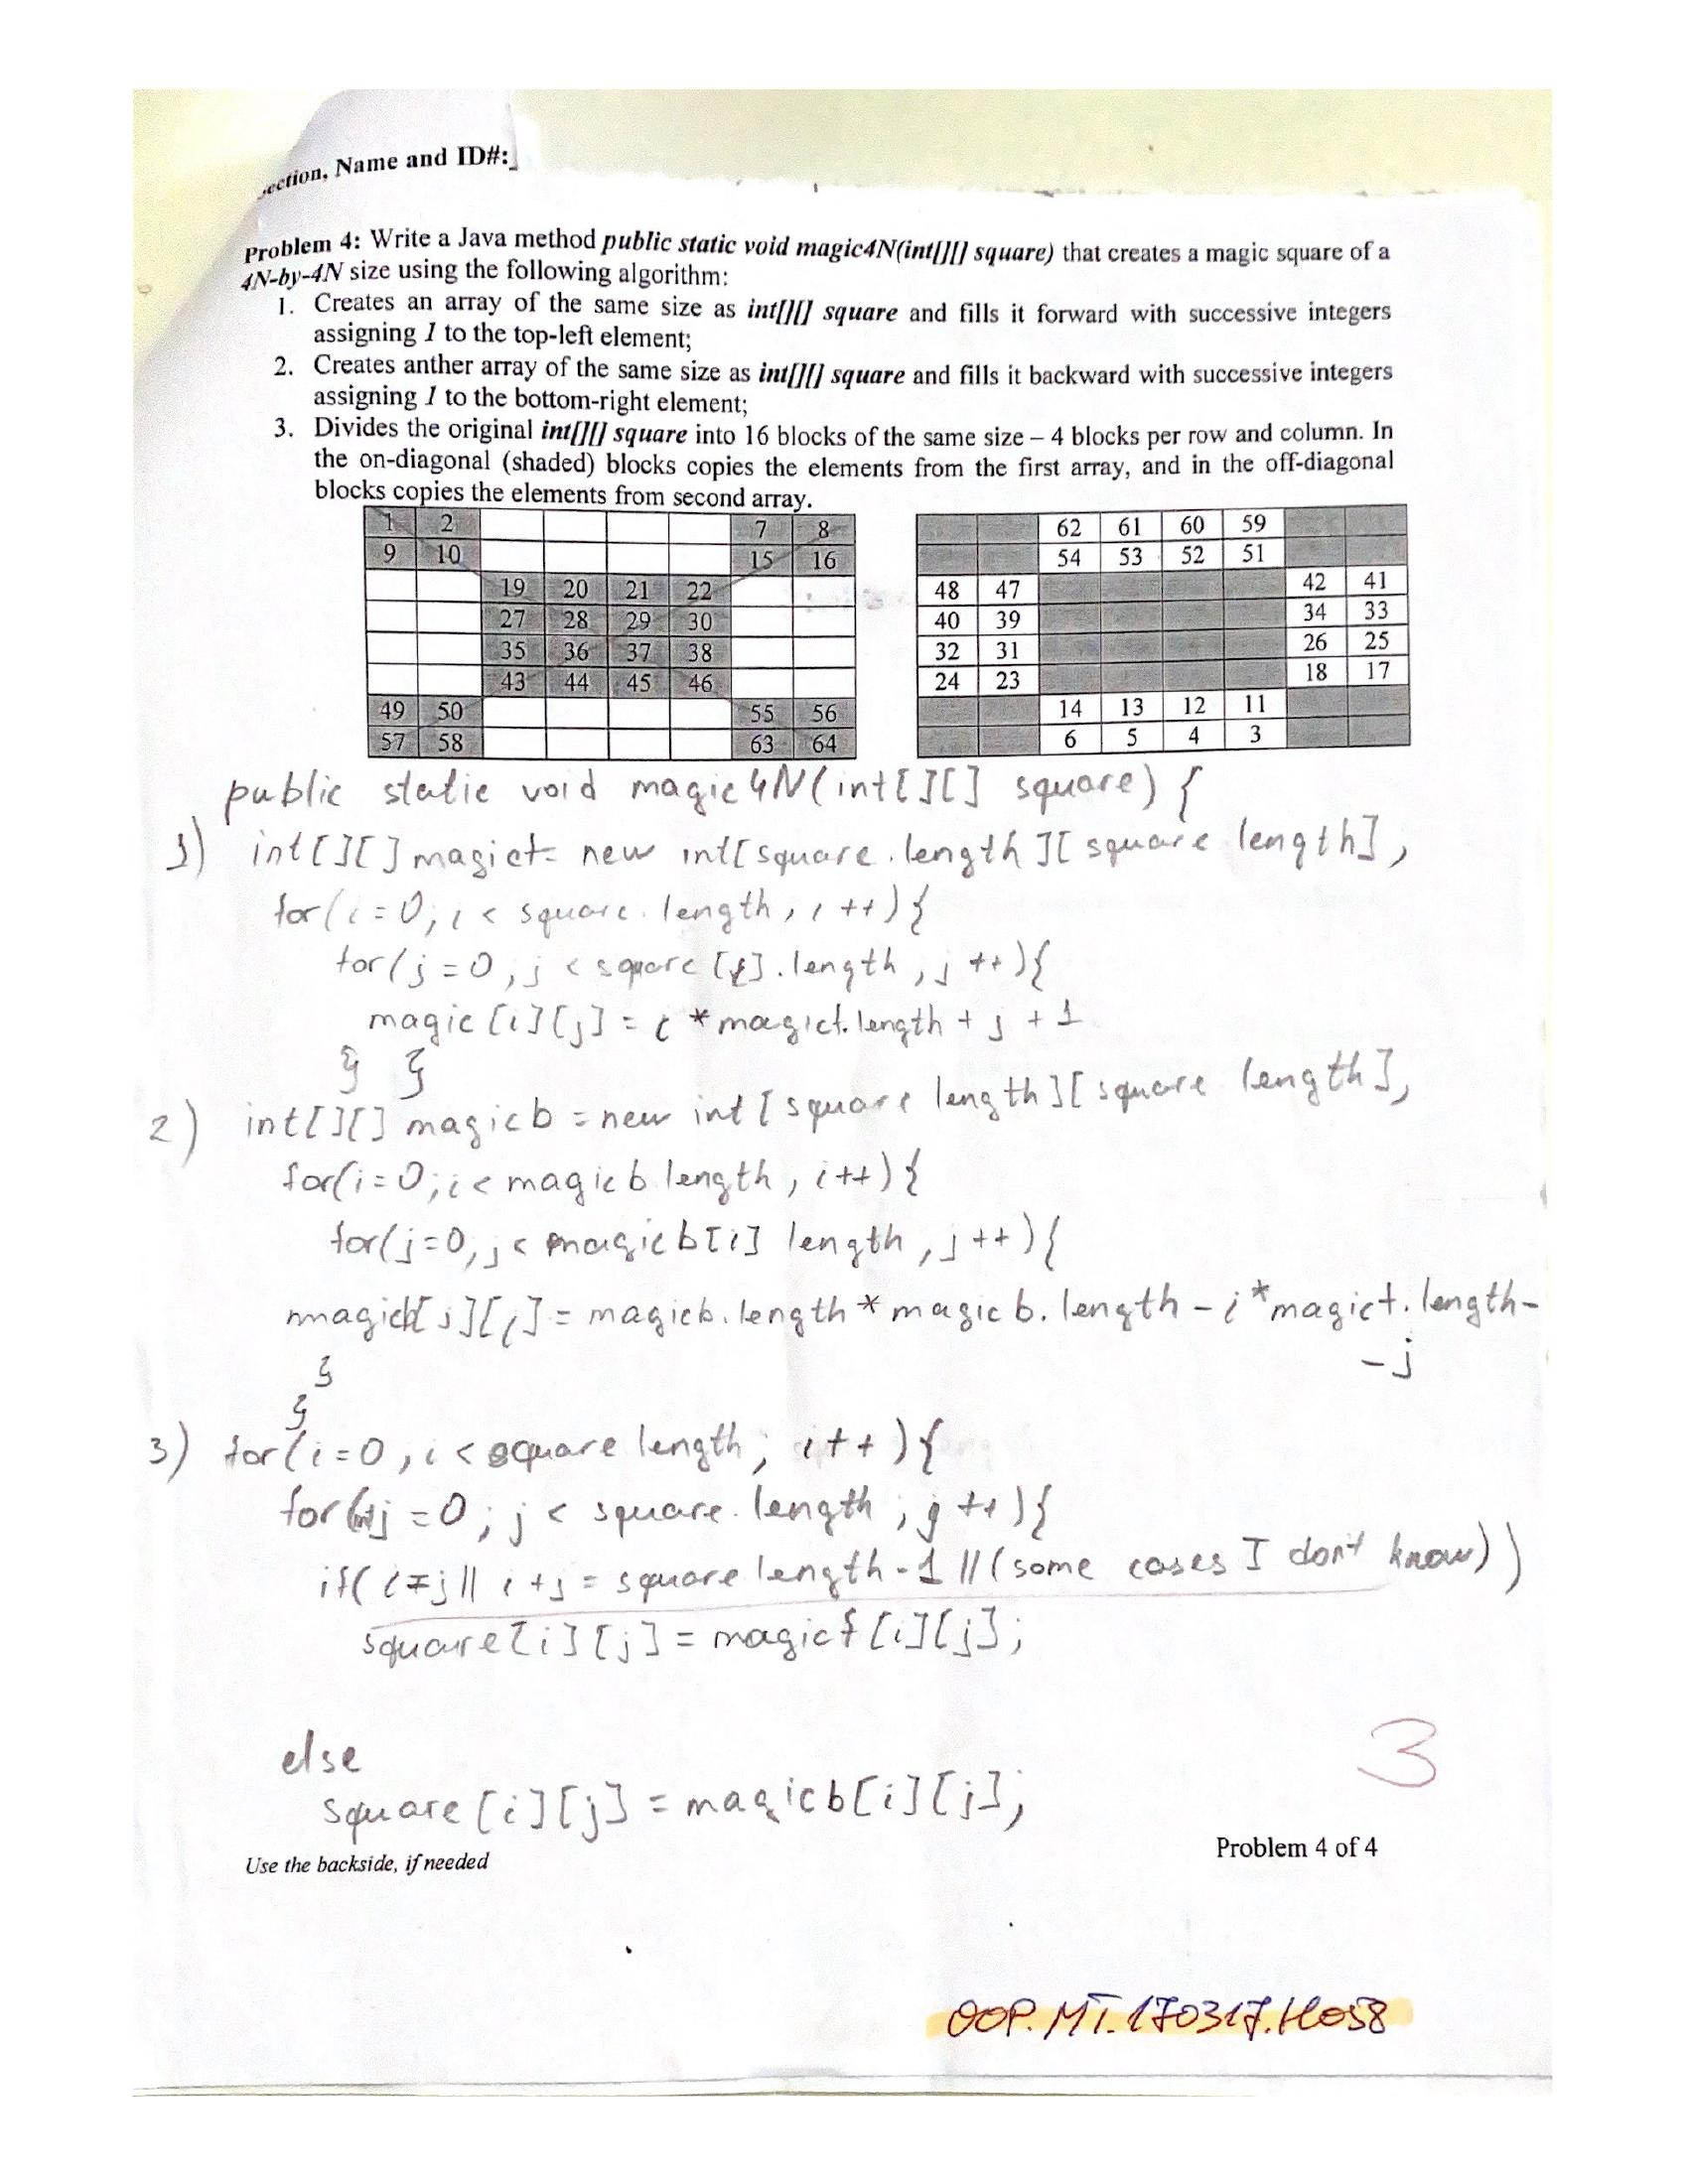 ection, Name and ID#:
Problem 4: Write a Java method public static void magic4N(int[][] square) that creates a magic square of a
4N-by-4N size using the following algorithm:
1. Creates an array of the same size as int[][] square and fills it forward with successive integers
assigning 1 to the top-left element;
2. Creates anther array of the same size as int[][] square and fills it backward with successive integers
assigning 1 to the bottom-right element;
3. Divides the original int[][] square into 16 blocks of the same size – 4 blocks per row and column. In
the on-diagonal (shaded) blocks copies the elements from the first array, and in the off-diagonal
blocks copies the elements from second array.
1 2 7 8 62 61 60 59
9 10 15 16 54 53 52 51
19 20 21 22 48 47 42 41
27 28 29 30 40 39 34 33
35 36 37 38 32 31 26 25
43 44 45 46 24 23 18 17
49 50 55 56 14 13 12 11
57 58 63 64 6 5 4 3
public static void magic4N(int[][] square) {
1) int[][] magicf = new int[square.length][square length],
for(i=0; i < square.length, i++){
for(j=0, j < square[i].length, j++){
magic[i][j] = i * magicf.length + j + 1
} }
2) int[][] magicb = new int[square length][square length],
for(i=0; i < magicb length, i++){
for(j=0, j < magicb[i] length, j++){
magicb[i][j] = magicb.length * magicb.length - i * magicf.length -
- j
}
}
3) for(i=0, i < square length; i++){
for(int j=0; j < square.length; j++){
if(i==j || i+j = square length-1 || (some cases I dont know))
square[i][j] = magicf[i][j];
else
square[i][j] = magicb[i][j];
3
Use the backside, if needed
Problem 4 of 4
OOP.MT.170317.H058